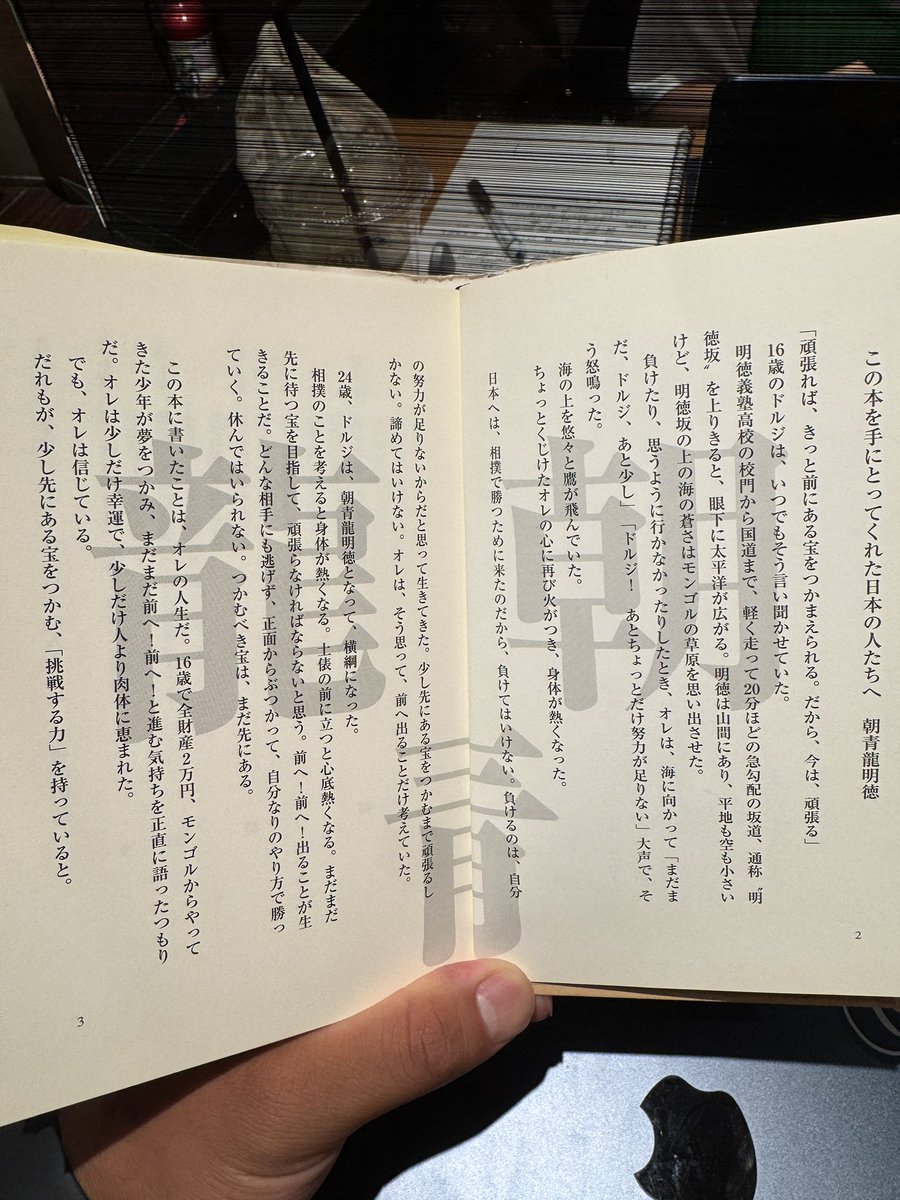 この本を手にとってくれた日本の人たちへ　朝青龍明徳
「頑張れば、きっと前にある宝をつかまえられる。だから、今は、頑張る」
16歳のドルジは、いつでもそう言い聞かせていた。
明徳義塾高校の校門から国道まで、軽く走って20分ほどの急勾配の坂道、通称〝明
徳坂〟を上りきると、眼下に太平洋が広がる。明徳は山間にあり、平地も空も小さい
けど、明徳坂の上の海の蒼さはモンゴルの草原を思い出させた。
負けたり、思うように行かなかったりしたとき、オレは、海に向かって「まだま
だ、ドルジ、あと少し」「ドルジ！　あとちょっとだけ努力が足りない」大声で、そ
う怒鳴った。
海の上を悠々と鷹が飛んでいた。
ちょっとくじけたオレの心に再び火がつき、身体が熱くなった。
日本へは、相撲で勝つために来たのだから、負けてはいけない。負けるのは、自分
2
の努力が足りないからだと思って生きてきた。少し先にある宝をつかむまで頑張るし
かない。諦めてはいけない。オレは、そう思って、前へ出ることだけ考えていた。
24歳、ドルジは、朝青龍明徳となって、横綱になった。
相撲のことを考えると身体が熱くなる。土俵の前に立つと心底熱くなる。まだまだ
先に待つ宝を目指して、頑張らなければならないと思う。前へ！前へ！出ることが生
きることだ。どんな相手にも逃げず、正面からぶつかって、自分なりのやり方で勝っ
ていく。休んではいられない。つかむべき宝は、まだ先にある。
この本に書いたことは、オレの人生だ。16歳で全財産2万円、モンゴルからやって
きた少年が夢をつかみ、まだまだ前へ！前へ！と進む気持ちを正直に語ったつもり
だ。オレは少しだけ幸運で、少しだけ人より肉体に恵まれた。
でも、オレは信じている。
だれもが、少し先にある宝をつかむ、「挑戦する力」を持っていると。
3
朝
青
龍